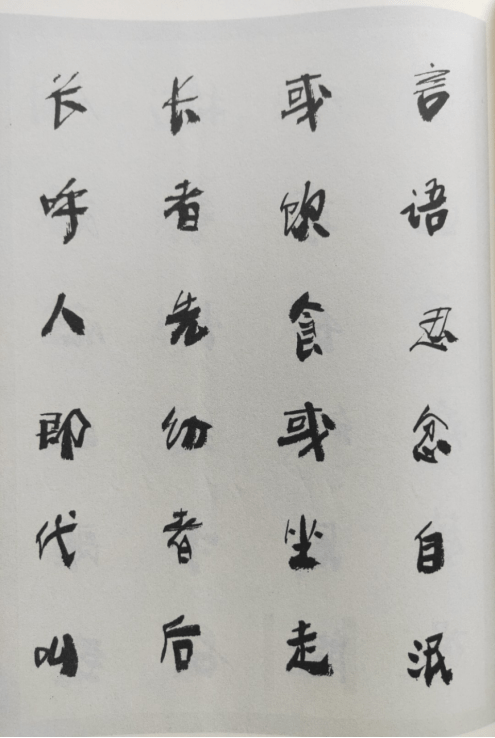 言语忍忿自泯
或饮食或坐走
长者先幼者后
长呼人即代叫